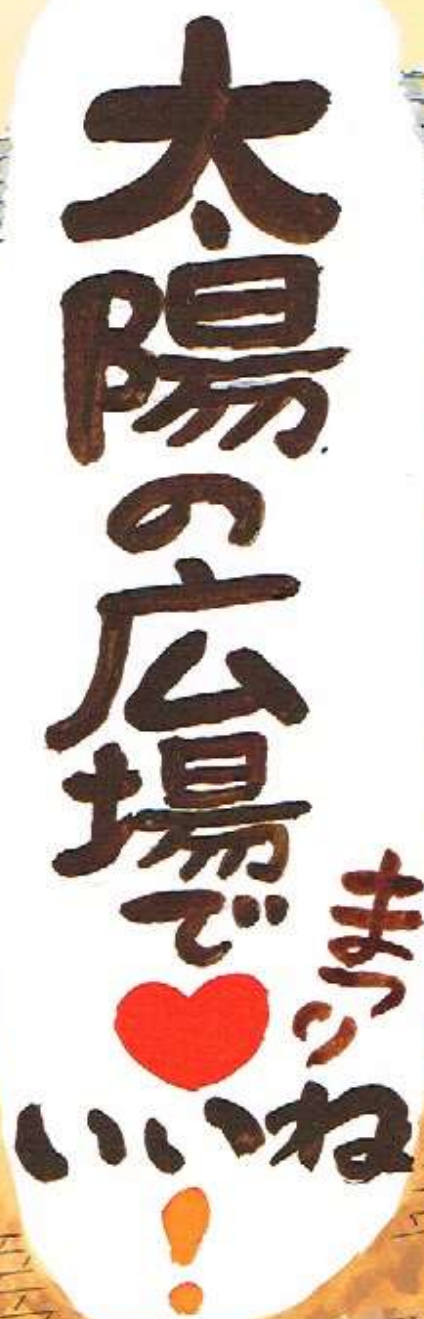 太陽の広場で
まつり
いいね!